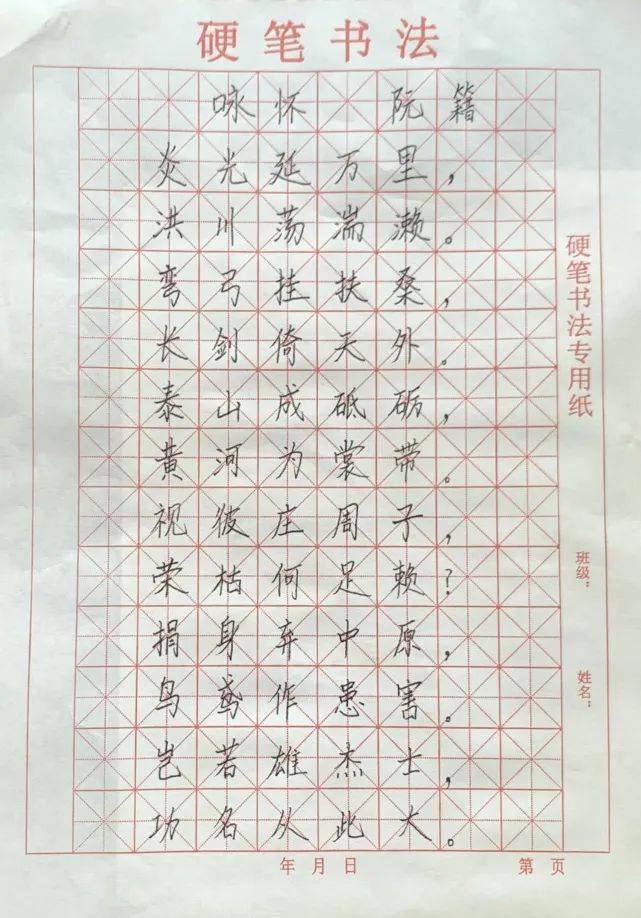 硬笔书法
咏怀 阮籍
炎光延万里，
洪川荡湍濑。
弯弓挂扶桑，
长剑倚天外。
泰山成砥砺，
黄河为裳带。
视彼庄周子，
荣枯何足赖？
捐身弃中原，
鸟鸢作患害。
岂若雄杰士，
功名从此大。
硬笔书法专用纸
班级：
姓名：
年 月 日
第 页